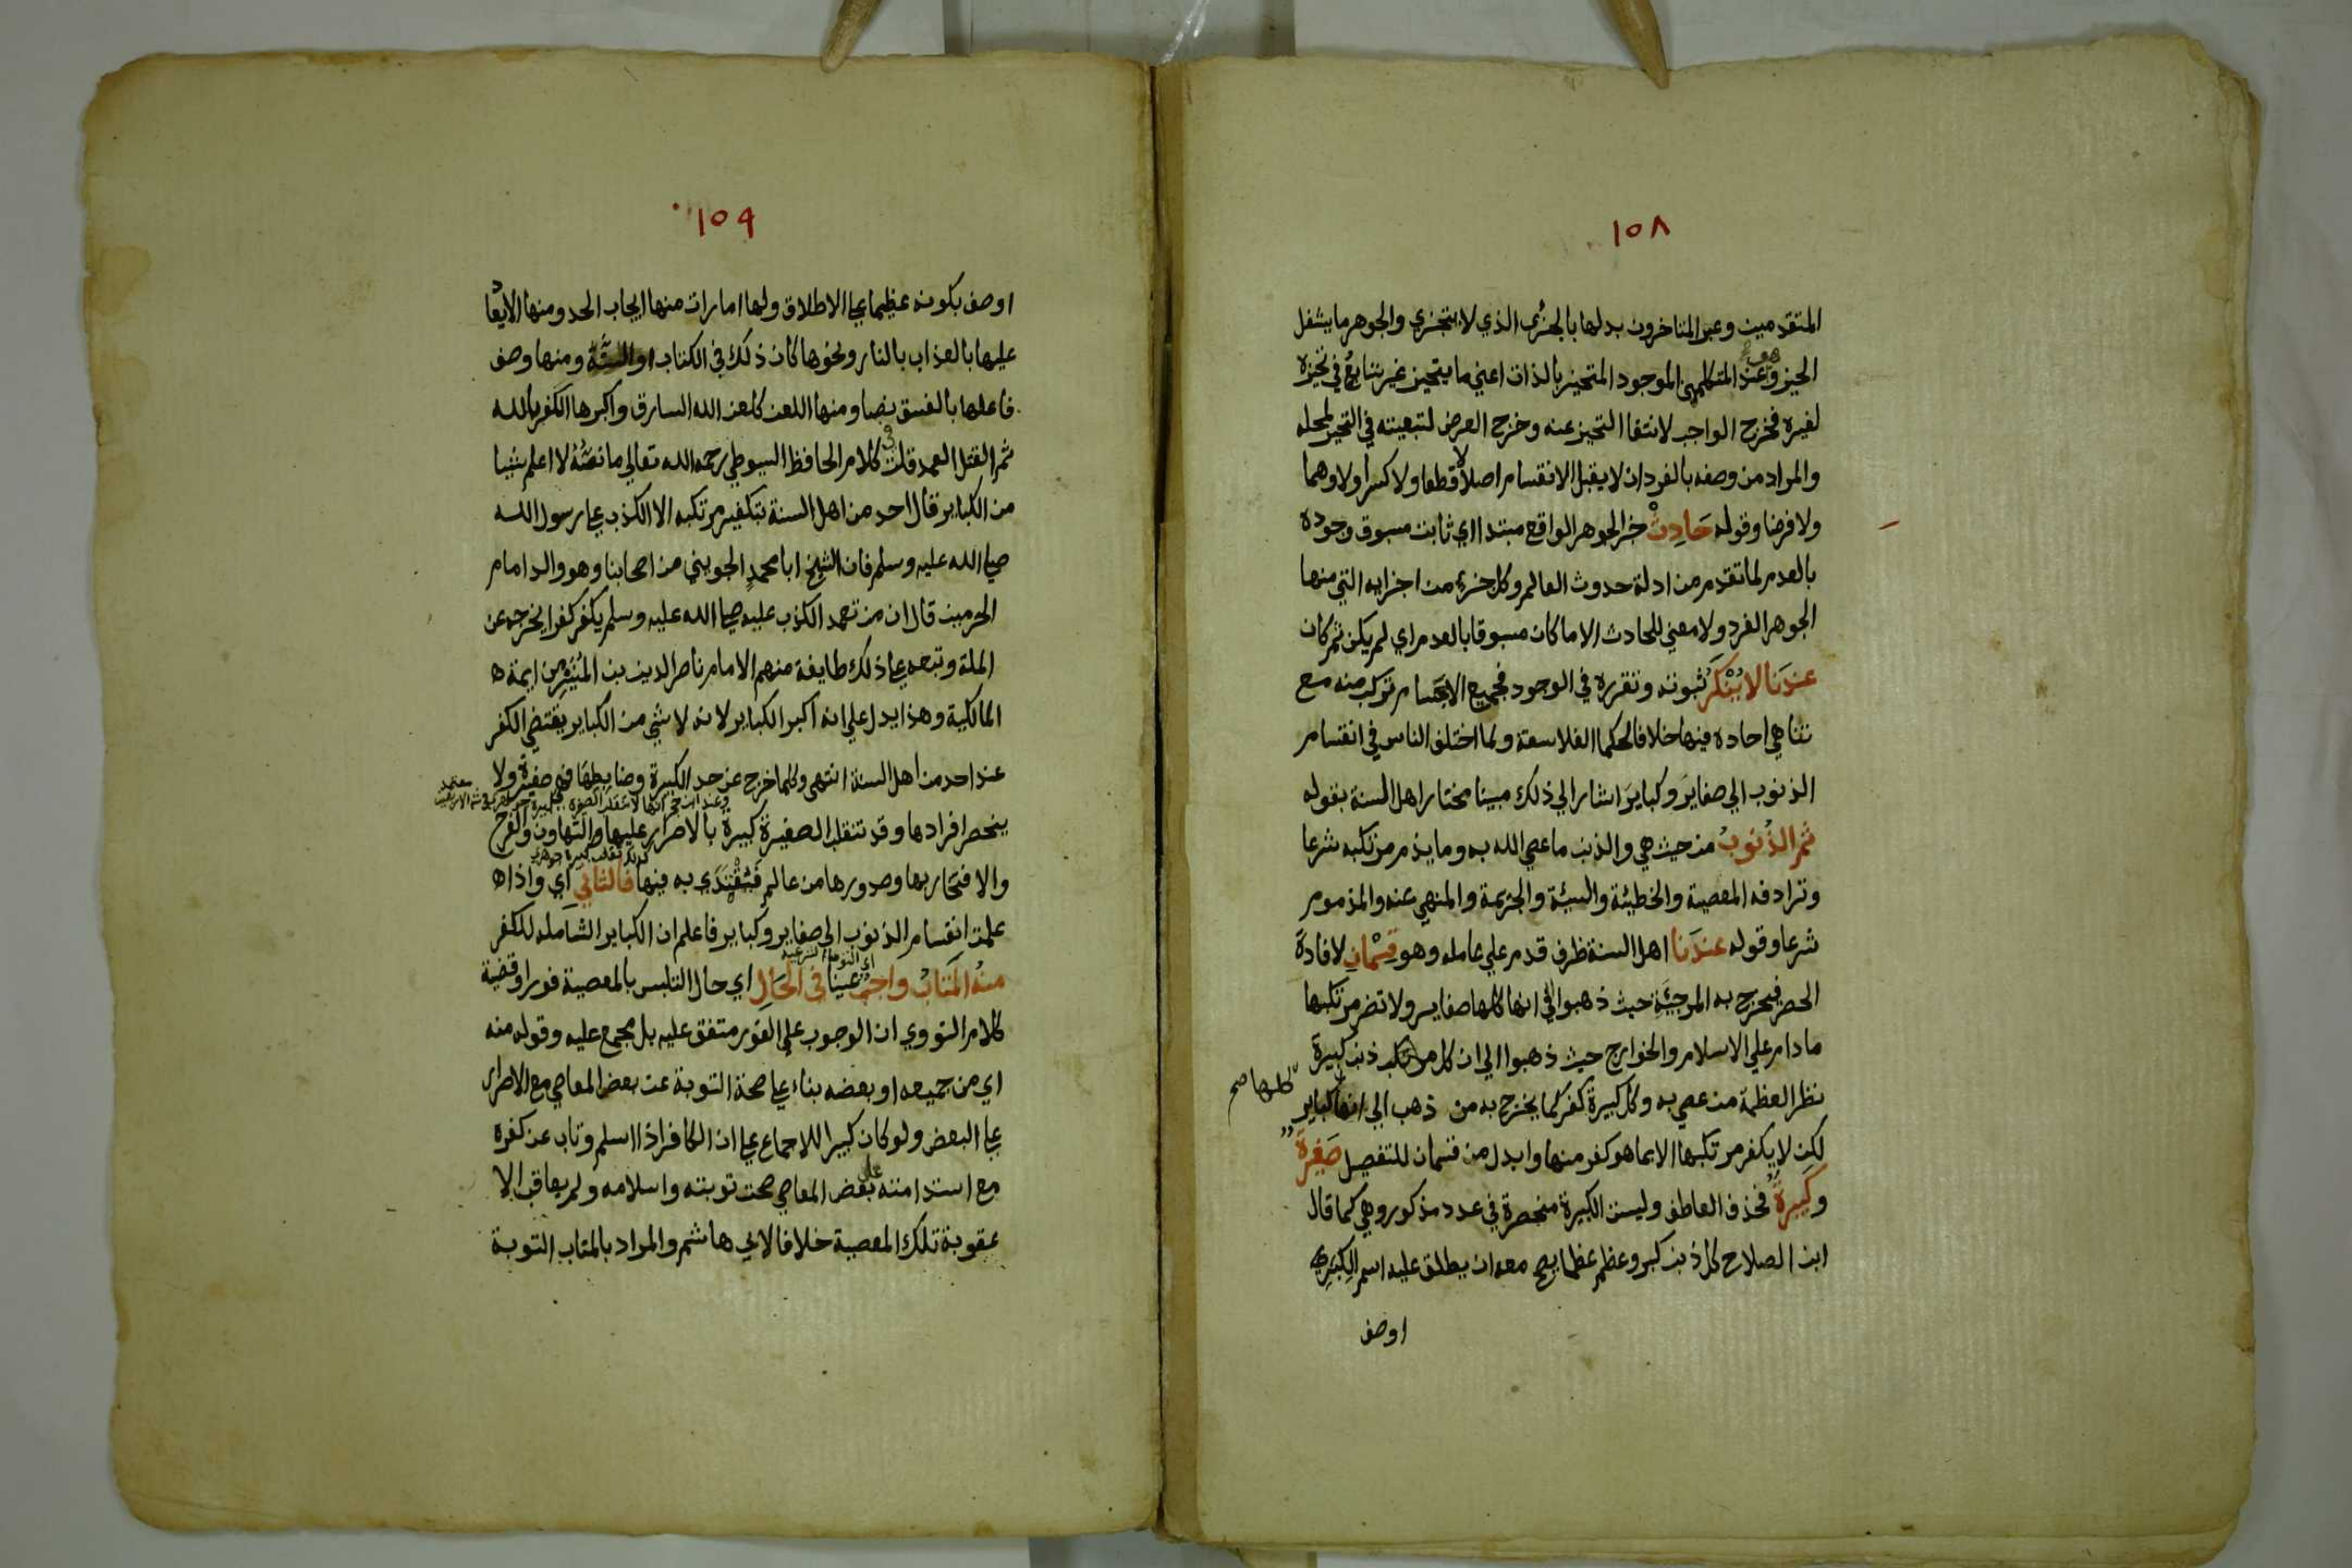 ١٥٨
المتقدمين وعبر المتاخرون بدلها بالجزء الذي لا يتجزي والجوهر ما يشغل
الحيز وهو عند المتكلمين الموجود المتحيز بالذات اعني ما يتحيز غير تابع في تحيزه
لغيره فخرج الواجب لانتفا التحيز عنه وخرج العرض لتبعيته في التحيز لمحله
والمراد من وصفه بالفرد ان لا يقبل الانقسام اصلا لا قطعا ولا كسرا ولا وهما
ولا فرضا وقوله حَادِثْ خبر الجوهر الواقع مبتدا اي ثابت مسبوق وجوده
بالعدم لما تقدم من ادلة حدوث العالم وكل جزء من اجزايه التي منها
الجوهر الفرد ولا معني للحادث الا ما كان مسبوقا بالعدم اي لم يكن ثم كان
عندَنا لا يُنْكَرُ ثبوته وتقرره في الوجود فجميع الاجسام تركب منه مع
تناهي احاده فيها خلافا لحكما الفلاسفة ولما اختلف الناس في انقسام
الذنوب الي صغايرَ وكبايرَ اشار الي ذلك مبينا مختار اهل السنة بقوله
ثم الذُنوبُ من حيث هي والذنب ما عصي الله به وما يذم مرتكبه شرعا
وترادفه المعصية والخطيئة والسيئة والجريمة والمنهي عنه والمذموم
شرعا وقوله عندَنا اهل السنة ظرف قدم علي عامله وهو قِسْمانِ لافادة
الحصر فيخرج به المرجئة حيث ذهبوا الي انها كلها صغاير ولا تضر مرتكبها
ما دام علي الاسلام والخوارج حيث ذهبوا الي ان كل مرتكب ذنب كبيرة
نظرا لعظمة من عصي به وكل كبيرة كفر كما يخرج به من ذهب الي انها كباير
كلها صح
لكن لا يكفر مرتكبها الا بما هو كفر منها وابدل من قسمان للتفصيل صَغِيرةٌ
وكَبِيرةٌ فحذف العاطف وليست الكبيرة منحصرة في عدد مذكور وهي كما قال
ابن الصلاح كل ذنب كبر وعظم عظما يصح معه ان يطلق عليه اسم الكبيرة
اوصف
١٥٩
اوصف بكونه عظيما علي الاطلاق ولها امارات منها ايجاب الحد ومنها الايعا
عليها بالعذاب بالنار ونحوها كان ذلك في الكتاب او السنة ومنها وصف
فاعلها بالفسق نصا ومنها اللعن كلعن الله السارق واكبرها الكفر بالله
ثم القتل العمد قلت في كلام الحافظ السيوطي رحمه الله تعالي ما نصه لا اعلم شيا
من الكباير قال احد من اهل السنة بتكفير مرتكبه الا الكذب علي رسول الله
صلي الله عليه وسلم فان الشيخ ابا محمد الجويني من اصحابنا وهو والد امام
الحرمين قال ان من تعمد الكذب عليه صلي الله عليه وسلم يكفر كفرا يخرجه عن
الملة وتبعه علي ذلك طايفة منهم الامام ناصر الدين بن المنير من ايمة ه
المالكية وهذا يدل علي انه اكبر الكباير لانه لا شي من الكباير يقتضي الكفر
عند احد من اهل السنة انتهي وكلما خرج عن حد الكبيرة وضابطها فهي صغيرة ولا
ينحصر افرادها وقد تنقلب الصغيرة كبيرة بالاصرار عليها والتهاون والفرح
والافتخار بها وصدورها من عالم فَيُقْتَدَي به فيها فالثاني اي واذا ه
علمت انقسام الذنوب الي صغاير وكباير فاعلم ان الكباير الشاملة للكفر
اي التوبة الشرعية
منهُ المَتَابُ واجبٌ عينا في الحَالِ اي حال التلبس بالمعصية فورا وقضية
كلام النووي ان الوجوب علي الفور متفق عليه بل مجمع عليه وقوله منه
اي من جميعه او بعضه بناء علي صحة التوبة عن بعض المعاصي مع الاصرار
علي البعض ولو كان كبيرا للاجماع علي ان الكافر اذا اسلم وتاب عن كفره
مع استدامته علي بعض المعاصي صحت توبته واسلامه ولم يعاقب الا
عقوبة تلك المعصية خلافا لابي هاشم والمراد بالمتاب التوبة